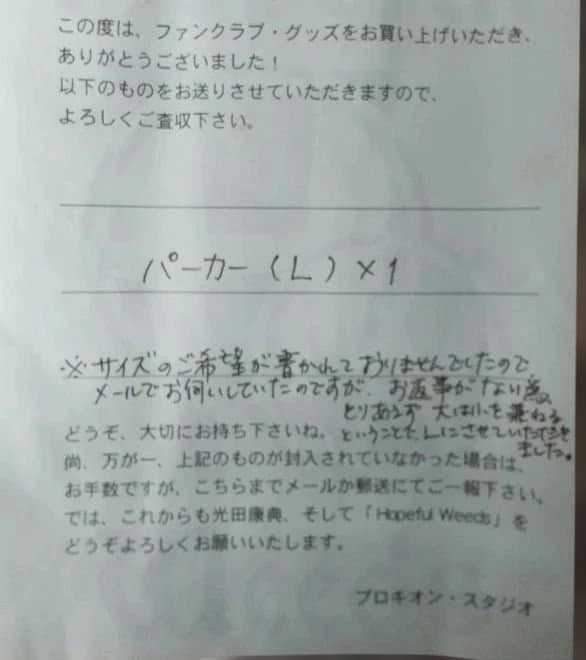 この度は、ファンクラブ・グッズをお買い上げいただき、
ありがとうございました！
以下のものをお送りさせていただきますので、
よろしくご査収下さい。
パーカー（L）×1
※サイズのご希望が書かれておりませんでしたので、
メールでお伺いしていたのですが、お返事がない為、
とりあえず 大は小を兼ねる
ということで、Lにさせていただき
ました。
どうぞ、大切にお持ち下さいね。
尚、万が一、上記のものが封入されていなかった場合は、
お手数ですが、こちらまでメールか郵送にてご一報下さい。
では、これからも光田康典、そして「Hopeful Weeds」を
どうぞよろしくお願いいたします。
プロキオン・スタジオ